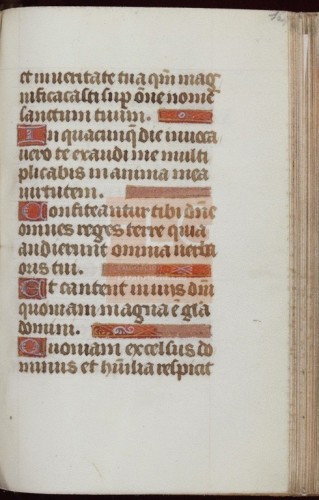 et in veritate tua qm̄ mag
nificacasti sup̄ om̄e nome
sanctum tuum.
In quacumq̄ die invoca
vero te exaudi me multi
plicabis in anima mea
virtutem.
Confiteantur tibi dn̄e
omnes reges terre quia
audierunt omnia verba
oris tui.
Et cantent in viis dn̄i
quoniam magna ē glā
domini.
Quoniam excelsus do
minus et hūilia respicit